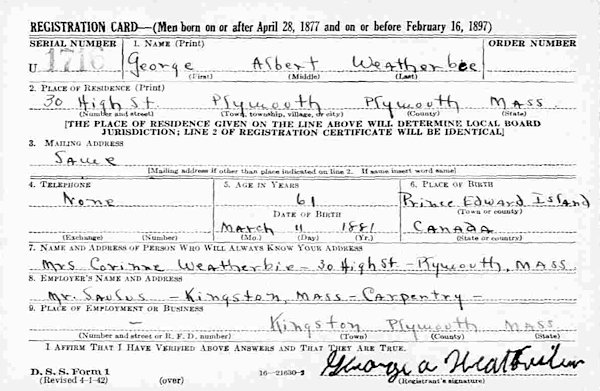 REGISTRATION CARD—(Men born on or after April 28, 1877 and on or before February 16, 1897)
SERIAL NUMBER 1. NAME (Print) ORDER NUMBER
U 1716 George Albert Weatherbie
(First) (Middle) (Last)
2. PLACE OF RESIDENCE (Print)
30 High St. Plymouth Plymouth MASS.
(Number and street) (Town, township, village, or city) (County) (State)
[THE PLACE OF RESIDENCE GIVEN ON THE LINE ABOVE WILL DETERMINE LOCAL BOARD
JURISDICTION; LINE 2 OF REGISTRATION CERTIFICATE WILL BE IDENTICAL]
3. MAILING ADDRESS
Same
[Mailing address if other than place indicated on line 2. If same insert word same]
4. TELEPHONE 5. AGE IN YEARS 6. PLACE OF BIRTH
None 61 Prince Edward Island
DATE OF BIRTH (Town or county)
March 11 1881 CANADA
(Exchange) (Number) (Mo.) (Day) (Yr.) (State or country)
7. NAME AND ADDRESS OF PERSON WHO WILL ALWAYS KNOW YOUR ADDRESS
Mrs Corinne Weatherbie – 30 High St – Plymouth, MASS
8. EMPLOYER'S NAME AND ADDRESS
Mr. – Kingston, MASS – Carpentry –
9. PLACE OF EMPLOYMENT OR BUSINESS
– Kingston Plymouth MASS.
(Number and street or R. F. D. number) (Town) (County) (State)
I AFFIRM THAT I HAVE VERIFIED ABOVE ANSWERS AND THAT THEY ARE TRUE.
D. S. S. Form 1 George A Weatherbie
(Revised 4-1-42) (over) 16—21630-2 (Registrant's signature)